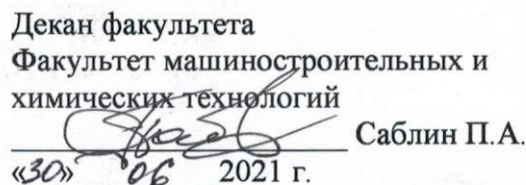 Декан факультета
Факультет машиностроительных и
химических технологий
Саблин П.А.
«30» 06 2021 г.